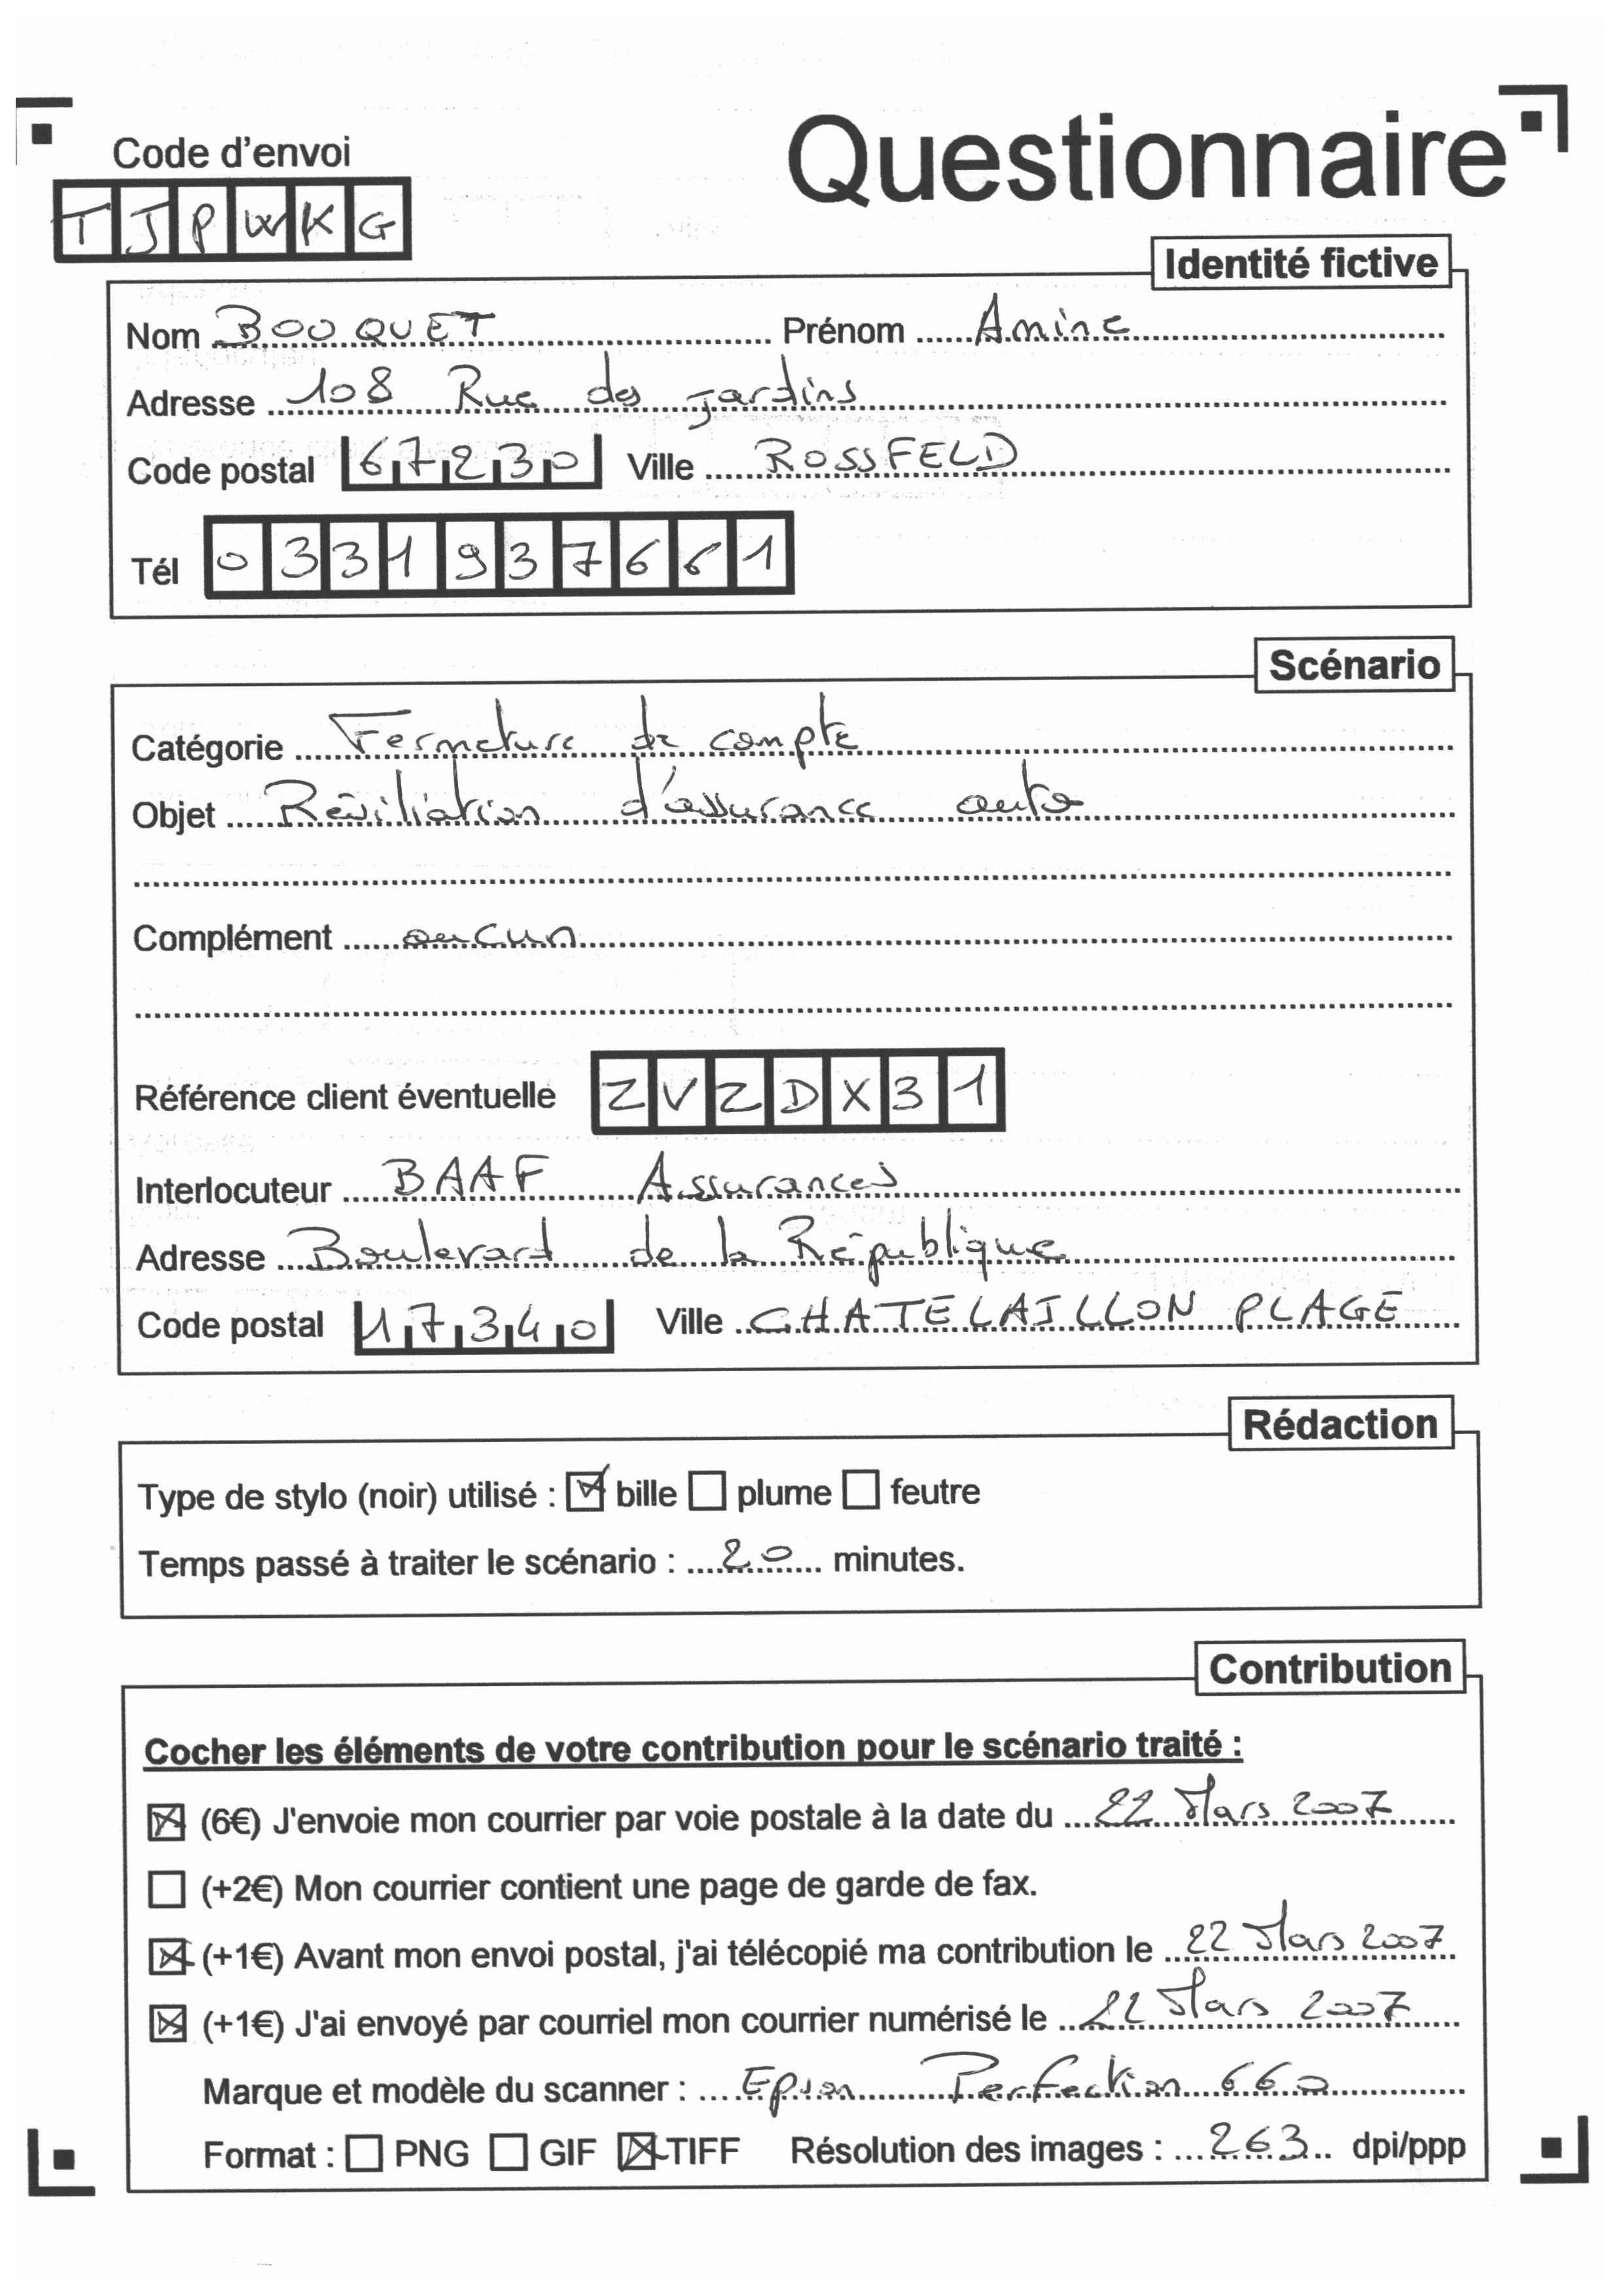 Questionnaire
Code d'envoi
TJPWKG
Identité fictive
Nom BOUQUET Prénom Amine
Adresse 108 Rue des jardins
Code postal 67230 Ville ROSSFELD
Tél 0331937661
Scénario
Catégorie Fermeture de compte
Objet Résiliation d'assurance auto
Complément aucun
Référence client éventuelle ZVZDX31
Interlocuteur BAAF Assurances
Adresse Boulevard de la République
Code postal 17340 Ville CHATELAILLON PLAGE
Rédaction
Type de stylo (noir) utilisé : ☒ bille ☐ plume ☐ feutre
Temps passé à traiter le scénario : 20 minutes.
Contribution
Cocher les éléments de votre contribution pour le scénario traité :
☒ (6€) J'envoie mon courrier par voie postale à la date du 22 Mars 2007
☐ (+2€) Mon courrier contient une page de garde de fax.
☒ (+1€) Avant mon envoi postal, j'ai télécopié ma contribution le 22 Mars 2007
☒ (+1€) J'ai envoyé par courriel mon courrier numérisé le 22 Mars 2007
Marque et modèle du scanner : Epson Perfection 660
Format : ☐ PNG ☐ GIF ☒ TIFF Résolution des images : 263 dpi/ppp